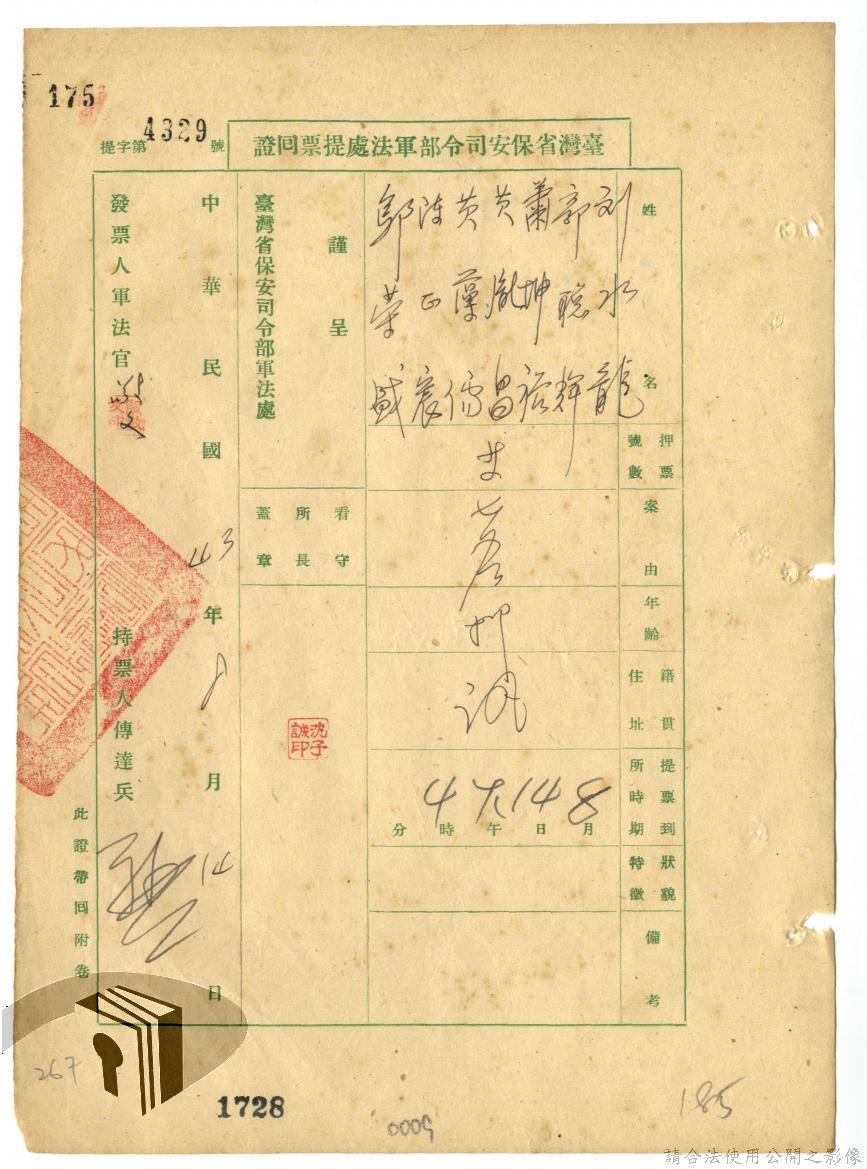 175
提字第4329號
臺灣省保安司令部軍法處提票回證
姓名
刘水龍
郭聪輝
蕭坤裕
黃胤昌
黃蘭儒
陳正宸
鄔榮盛
押票號數
案由
年齡
籍貫住址
提票到所時期
8月14日 午4時 分
狀貌特徵
備考
謹呈
臺灣省保安司令部軍法處
看守所長蓋章
沈子誠印
中華民國43年8月14日
發票人軍法官
持票人傳達兵
此證帶回附卷
267
1728
0009
185
請合法使用公開之影像